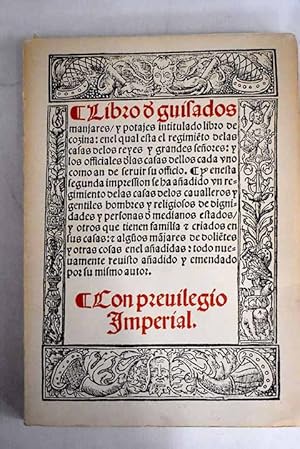 ¶Libro đ guisados
manjares/ y potajes intitulado libro de
cozina: enel qual esta el regimiẽto delas
casas delos reyes y grandes señores: y
los officiales dlas casas dellos cada vno
como an de seruir su officio. ¶Y enesta
segunda impression se ha añadido vn re-
gimiento delas casas delos caualleros y
gentiles hombres y religiosos de digni-
dades y personas đ medianos estados/
y otros que tienen familia ⁊ criados en
sus casas: ⁊ algũos mãjares de doliẽtes
y otras cosas enel añadidas: todo nue-
uamente reuisto añadido y emendado
por su mismo autor.
¶Con preuilegio
Imperial.